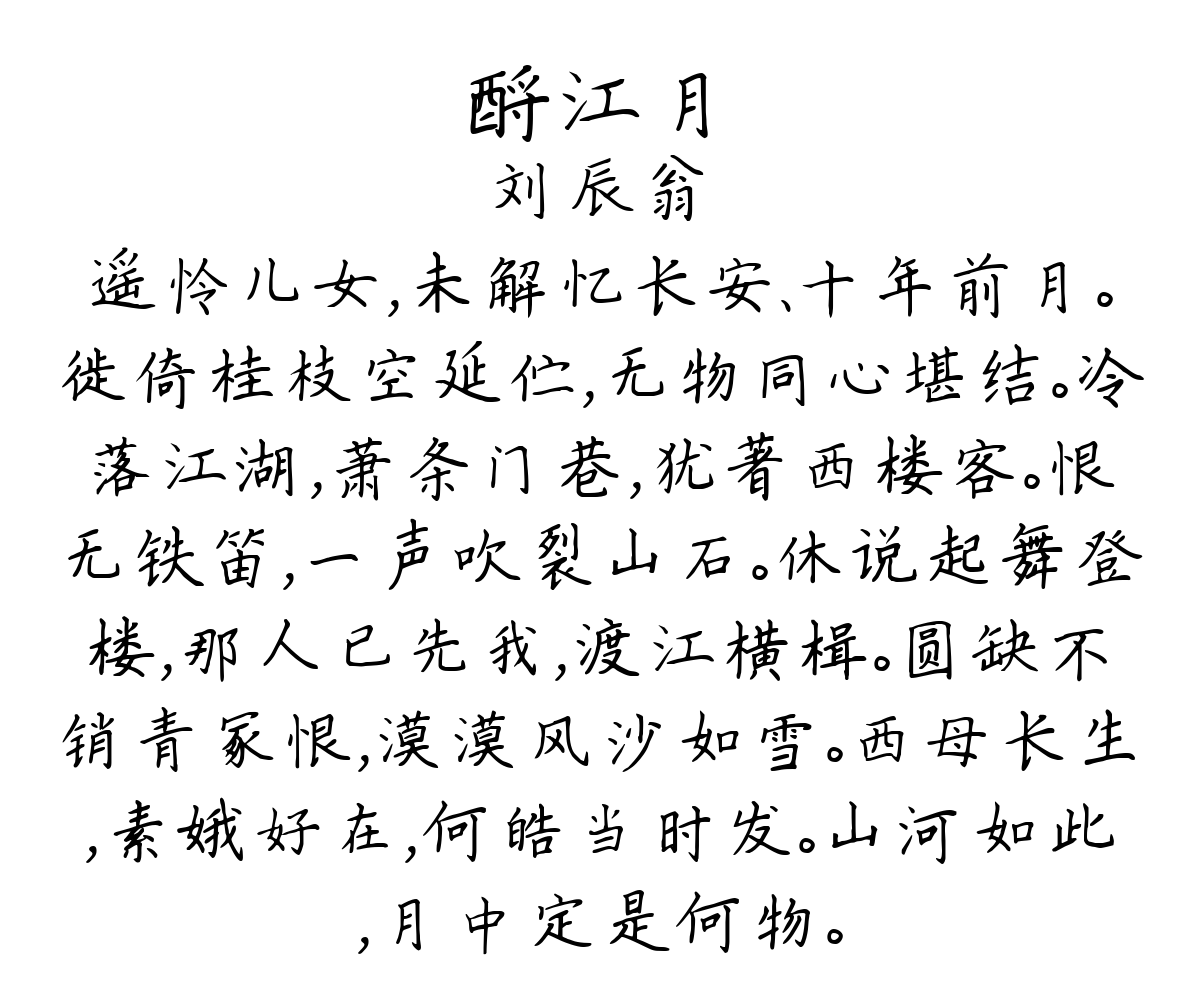 酹江月
刘辰翁
遥怜儿女,未解忆长安、十年前月。
徙倚桂枝空延伫,无物同心堪结。冷
落江湖,萧条门巷,犹著西楼客。恨
无铁笛,一声吹裂山石。休说起舞登
楼,那人已先我,渡江横楫。圆缺不
销青冢恨,漠漠风沙如雪。西母长生
,素娥好在,何皓当时发。山河如此
,月中定是何物。